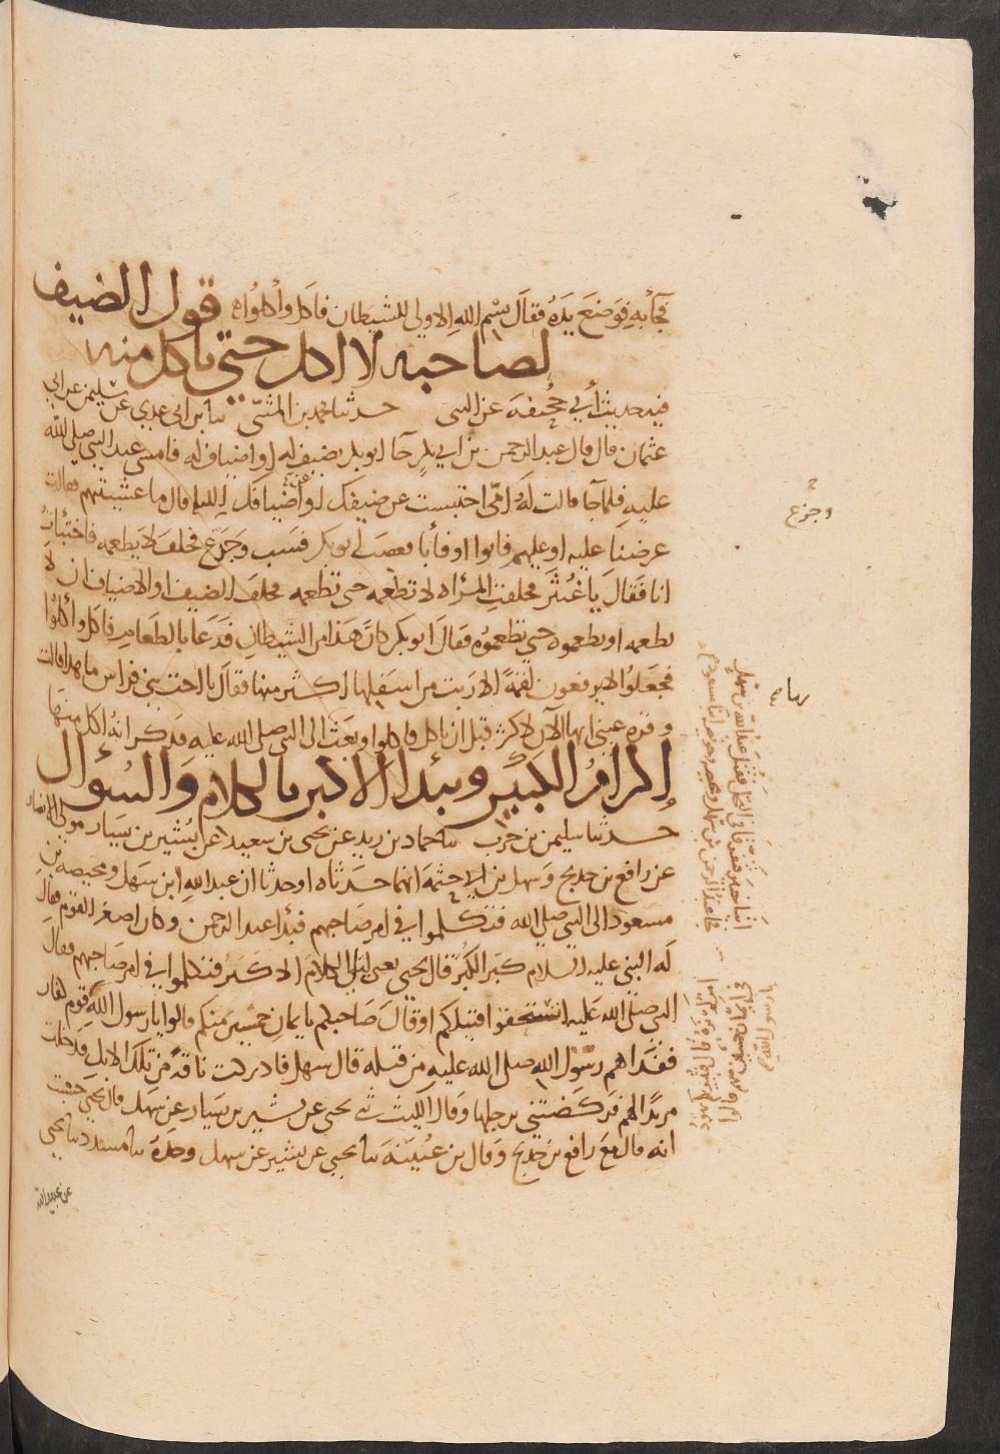 فجآء به فوضع يده فقال بسم الله الاولي للشيطان فاكل وأكلواه قول الضيف
لصاحبه لا اكل حتي تاكل منه
فيه حديث أبي جحيفة عن النبي حدثنا محمد بن المثنى نا بن ابي عدي عن سليمن عن ابي
عثمان قال قال عبد الرحمن بن ابي بكر جا ابو بكر بضيف له او اضياف له فامسى عند النبي صلى الله
عليه فلما جا قالت له امي احتبست عن ضيفك او أضيافك الليلة قال ما عشيتهم فقالت
عرضنا عليه او عليهم فابوا او فأبا فغضب ابو بكر فسب وجدع فحلف لا يطعمه فاختبأت
انا فقال يا غنثر فحلفت المرأة لا تطعمه حتى تطعمه فحلف الضيف او الاضياف ان لا
يطعمه او يطعموه حتي تطعموه فقال ابو بكر كان هذا من الشيطان فدعا بالطعام فاكل وأكلوا
فجعلوا لا يرفعون لقمة الا ربت من اسفلها اكثر منها فقال يا اخت بني فراس ما هذا قالت
وقرة عيني انها الآن لاكثر قبل ان ناكل فاكلوا وبعث الى النبي صلى الله عليه فذكر انه اكل منها
إكرام الكبير ويبدا الاكبر بالكلام والسؤال
حدثنا سليمن بن حرب نا حماد بن زيد عن يحيى بن سعيد عن بشير بن يسار مولى الانصار
عن رافع بن خديج وسهل بن أبي حثمة انهما حدثاه او حدثا ان عبد الله ابن سهل ومحيصة بن
مسعود الى النبي صلى الله فتكلموا في امر صاحبهم فبدأ عبد الرحمن وكان اصغر القوم فقال
له النبي عليه السلام كبر الكبر قال يحيى يعني ليلي الكلام الاكبر فتكلموا في امر صاحبهم فقال
النبي صلى الله عليه استحقوا قتيلكم او قال صاحبكم بايمان خمسين منكم قالوا يا رسول الله قوم كفار
ففداهم رسول الله صلى الله عليه من قبله قال سهل فادركت ناقة من تلك الابل فدخلت
مربدا لهم فركضتني برجلها وقال الليث ني يحيى عن بشير بن يسار عن سهل قال يحيى حسبت
انه قال مع رافع بن خديج وقال بن عيينة نا يحيى عن بشير عن سهل وحده نا مسدد نا يحيى
عن عبيد الله
وجزع